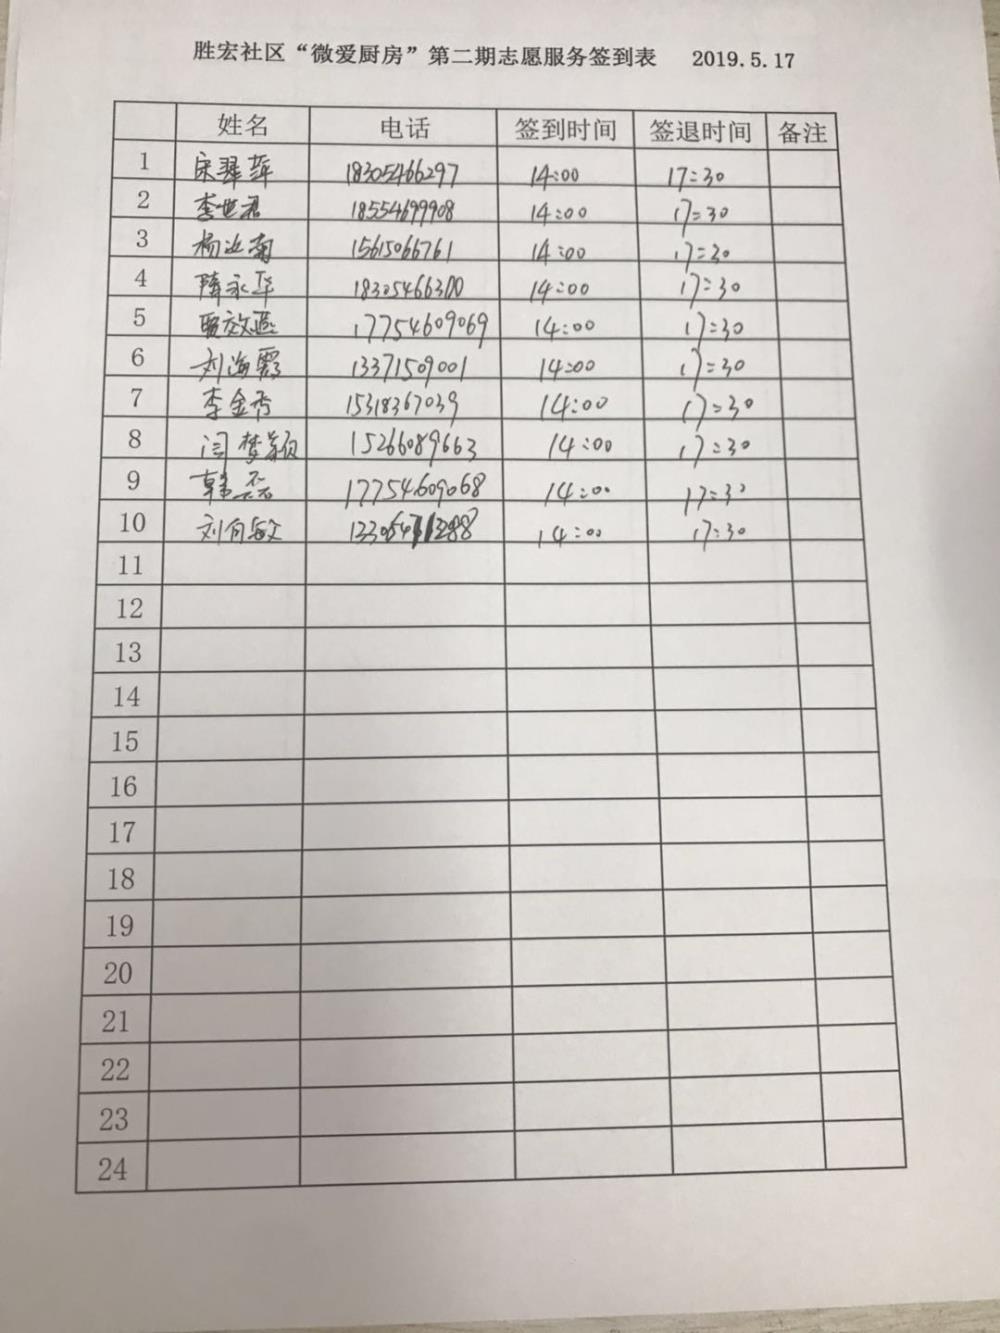 胜宏社区“微爱厨房”第二期志愿服务签到表 2019.5.17
姓名 电话 签到时间 签退时间 备注
1 宋翠萍 18305466297 14:00 17:30
2 李世君 18554699908 14:00 17:30
3 杨汝南 15615066761 14:00 17:30
4 隋永华 18305466300 14:00 17:30
5 17754609069 14:00 17:30
6 刘海霞 13371509001 14:00 17:30
7 李金秀 15318367039 14:00 17:30
8 闫梦颖 15266089663 14:00 17:30
9 韩磊 17754609068 14:00 17:30
10 刘向敏 14:00 17:30
11
12
13
14
15
16
17
18
19
20
21
22
23
24